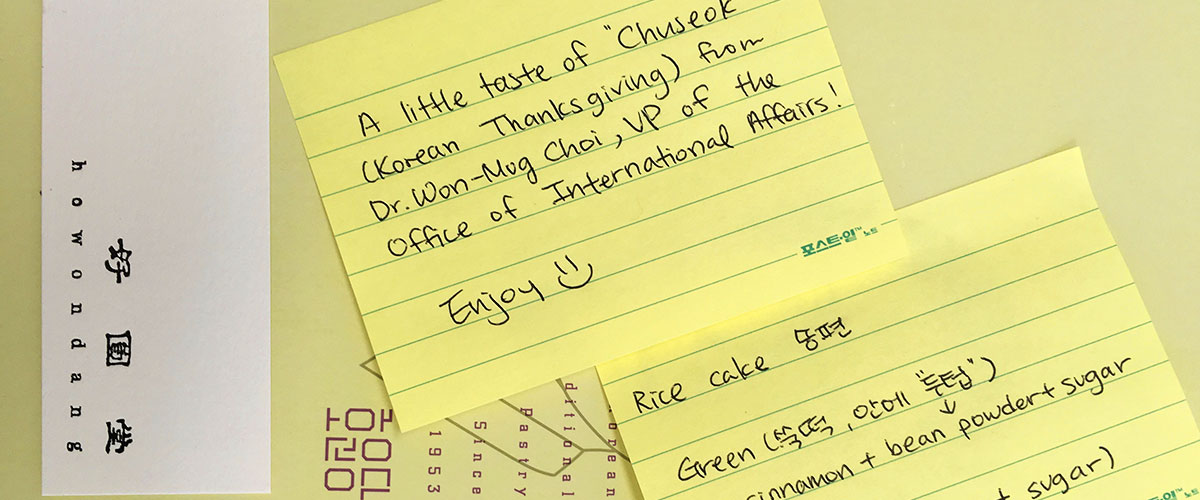 howondang
好圓堂
A little taste of "Chuseok
(Korean Thanksgiving) from
Dr. Won-Mug Choi, VP of the
Office of International Affairs!
Enjoy
포스트-잇™ 노트
Rice cake 송편
Green (쑥떡, 안에 "두텁")
cinnamon + bean powder + sugar
+ sugar)
orean
ditional
pastry
Since
1953